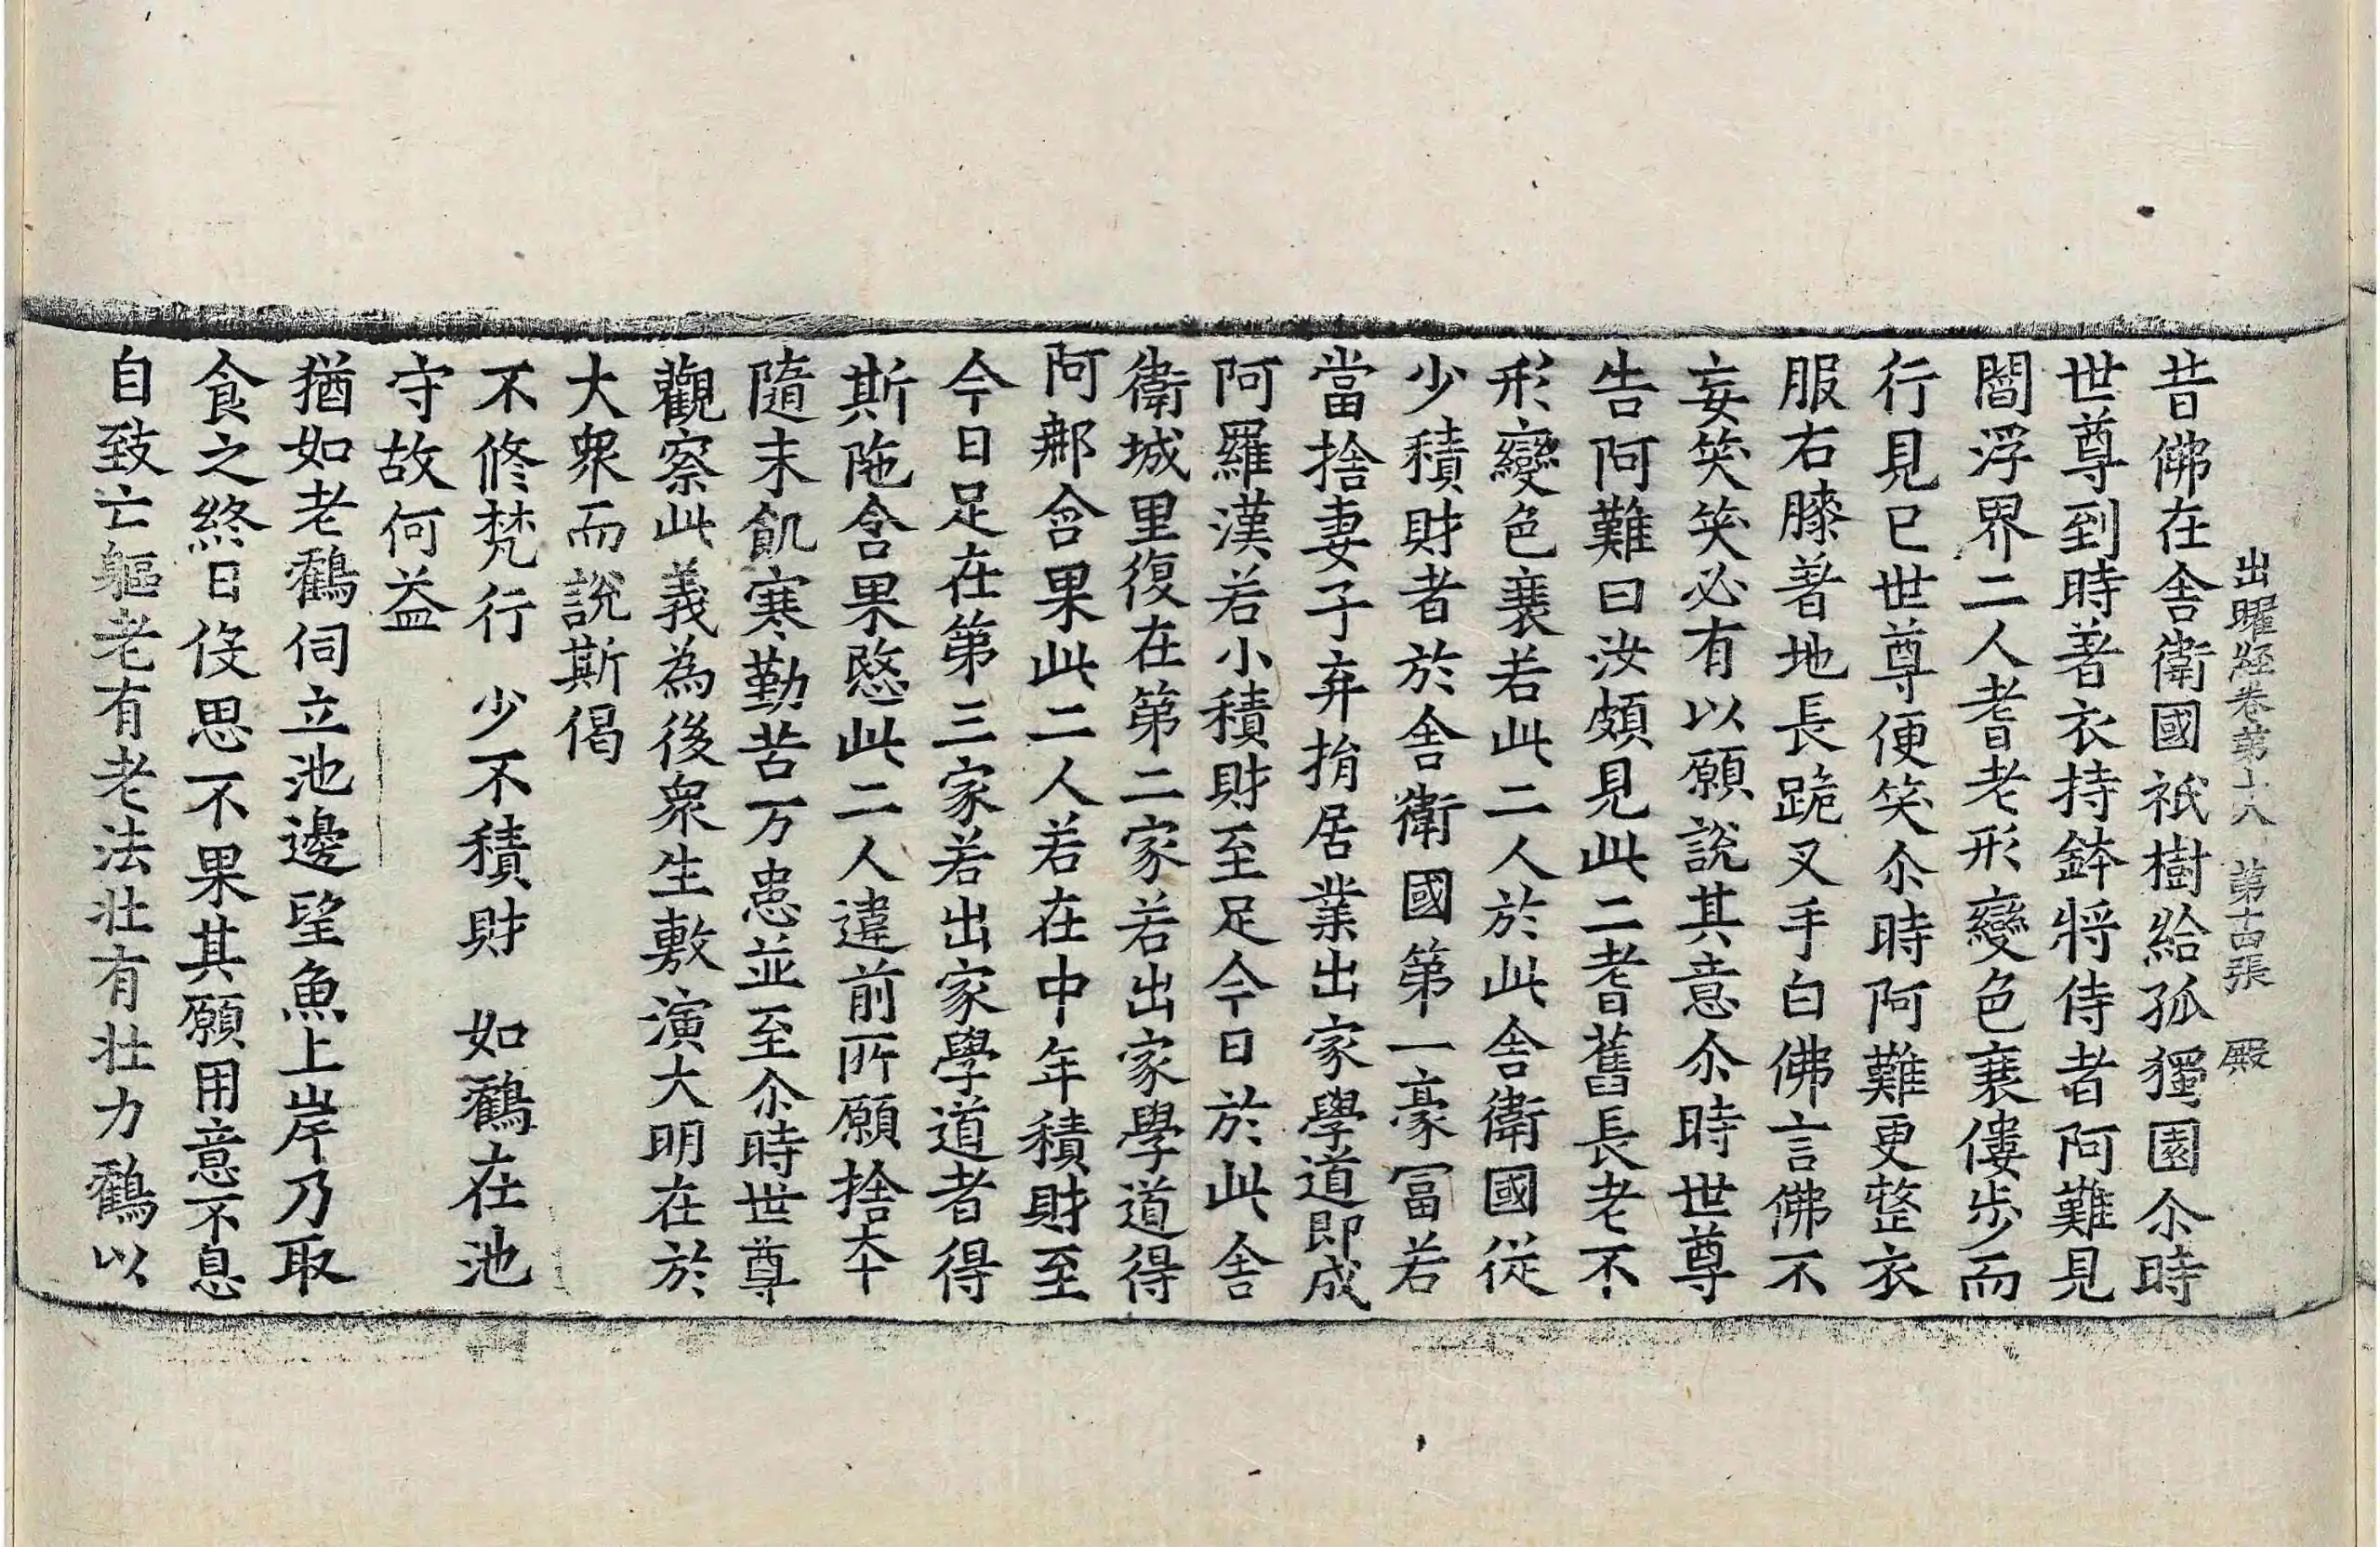 出曜經卷第十八　第十四張　殿
昔佛在舍衛國祇樹給孤獨園尒時
世尊到時著衣持鉢將侍者阿難見
閻浮界二人耆老形變色衰僂步而
行見已世尊便笑尒時阿難更整衣
服右膝著地長跪叉手白佛言佛不
妄笑笑必有以願說其意尒時世尊
告阿難曰汝頗見此二耆舊長老不
形變色衰若此二人於此舍衛國從
少積財者於舍衛國第一豪冨若
當捨妻子弃捐居業出家學道即成
阿羅漢若小積財至足今日於此舍
衛城里復在第二家若出家學道得
阿那含果此二人若在中年積財至
今日足在第三家若出家學道者得
斯陁含果愍此二人違前所願捨夲
隨末飢寒勤苦万患並至尒時世尊
觀察此義為後衆生敷演大明在於
大衆而說斯偈
不修梵行　少不積財　如鸖在池
守故何益
猶如老鸖伺立池邊望魚上岸乃取
食之終日伇思不果其願用意不息
自致亡軀老有老法壮有壮力鸖以